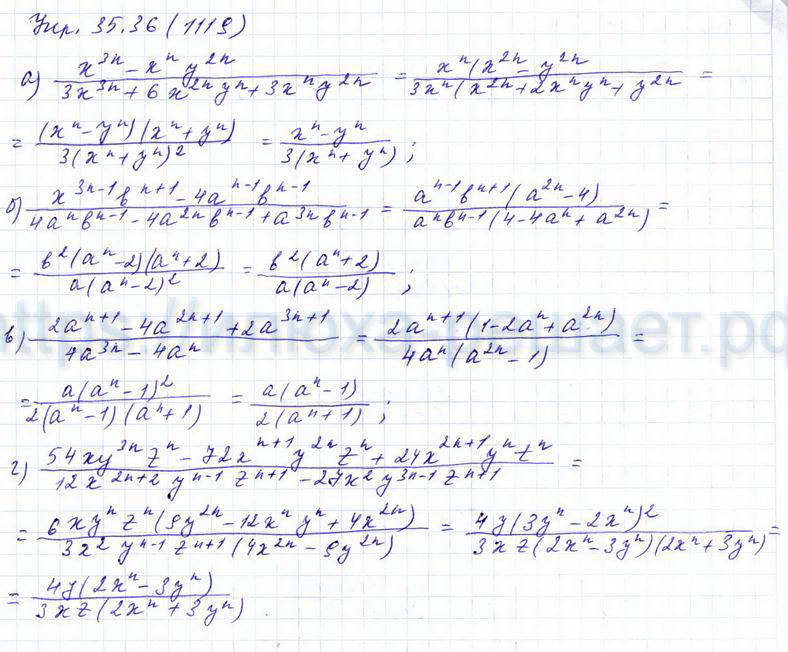 Упр. 35.36 (1119)
а) (x^{3n} - x^n y^{2n}) / (3x^{3n} + 6x^{2n}y^n + 3x^n y^{2n}) = x^n(x^{2n} - y^{2n} / 3x^n(x^{2n} + 2x^n y^n + y^{2n} =
= (x^n - y^n)(x^n + y^n) / 3(x^n + y^n)^2 = x^n - y^n / 3(x^n + y^n) ;
б) x^{3n-1}b^{n+1} - 4a^{n-1}b^{n-1} / 4a^n b^{n-1} - 4a^{2n}b^{n-1} + a^{3n}b^{n-1} = a^{n-1}b^{n+1}(a^{2n} - 4) / a^n b^{n-1}(4 - 4a^n + a^{2n}) =
= b^2(a^n - 2)(a^n + 2) / a(a^n - 2)^2 = b^2(a^n + 2) / a(a^n - 2) ;
https://илюха-решает.рф
в) 2a^{n+1} - 4a^{2n+1} + 2a^{3n+1} / 4a^{3n} - 4a^n = 2a^{n+1}(1 - 2a^n + a^{2n}) / 4a^n(a^{2n} - 1) =
= a(a^n - 1)^2 / 2(a^n - 1)(a^n + 1) = a(a^n - 1) / 2(a^n + 1) ;
г) 54xy^{3n}z^n - 72x^{n+1}y^{2n}z^n + 24x^{2n+1}y^n z^n / 12x^{2n+2}y^{n-1}z^{n+1} - 27x^2y^{3n-1}z^{n+1} =
= 6xy^n z^n(9y^{2n} - 12x^n y^n + 4x^{2n}) / 3x^2y^{n-1}z^{n+1}(4x^{2n} - 9y^{2n}) = 4y(3y^n - 2x^n)^2 / 3xz(2x^n - 3y^n)(2x^n + 3y^n) =
= 4y(2x^n - 3y^n) / 3xz(2x^n + 3y^n) .